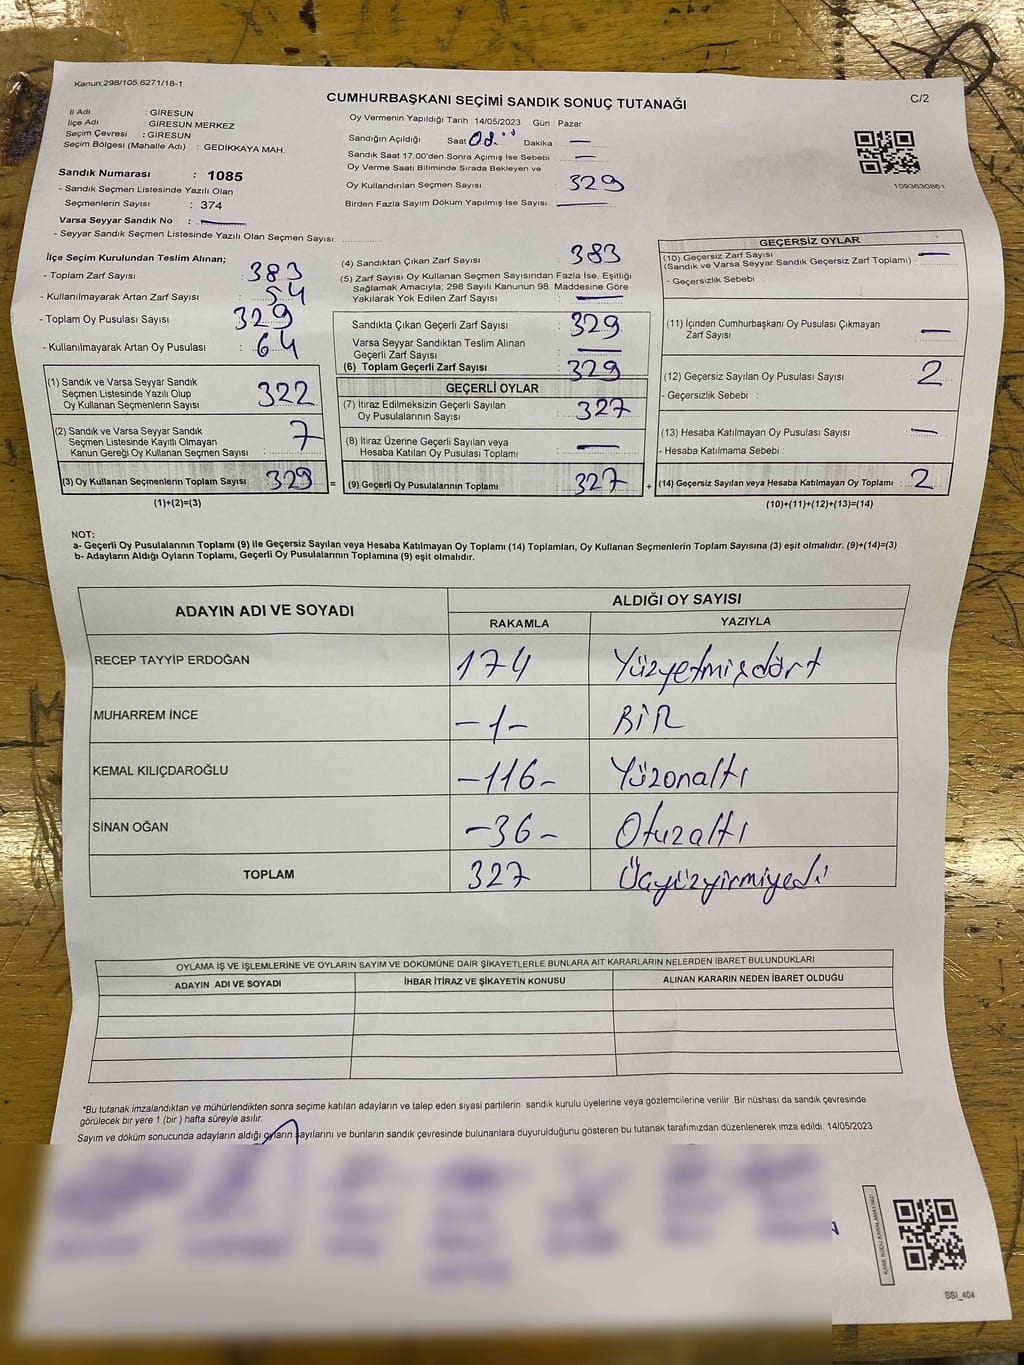 Kanun:298/105,6271/18-1
CUMHURBAŞKANI SEÇİMİ SANDIK SONUÇ TUTANAĞI
C/2
İl Adı : GİRESUN
İlçe Adı : GİRESUN MERKEZ
Seçim Çevresi : GİRESUN
Seçim Bölgesi (Mahalle Adı) : GEDİKKAYA MAH.
Sandık Numarası : 1085
- Sandık Seçmen Listesinde Yazılı Olan
Seçmenlerin Sayısı : 374
Varsa Seyyar Sandık No :
- Seyyar Sandık Seçmen Listesinde Yazılı Olan Seçmen Sayısı:
Oy Vermenin Yapıldığı Tarih : 14/05/2023 Gün : Pazar
Sandığın Açıldığı Saat 08.00 Dakika : —
Sandık Saat 17:00'den Sonra Açımış İse Sebebi : —
Oy Verme Saati Bitiminde Sırada Bekleyen ve
Oy Kullandırılan Seçmen Sayısı : 329
Birden Fazla Sayım Döküm Yapılmış İse Sayısı
1093630861
İlçe Seçim Kurulundan Teslim Alınan;
- Toplam Zarf Sayısı : 383
- Kullanılmayarak Artan Zarf Sayısı : 54
- Toplam Oy Pusulası Sayısı : 329
- Kullanılmayarak Artan Oy Pusulası : 64
(1) Sandık ve Varsa Seyyar Sandık
Seçmen Listesinde Yazılı Olup
Oy Kullanan Seçmenlerin Sayısı : 322
(2) Sandık ve Varsa Seyyar Sandık
Seçmen Listesinde Kayıtlı Olmayan
Kanun Gereği Oy Kullanan Seçmen Sayısı : 7
(3) Oy Kullanan Seçmenlerin Toplam Sayısı : 329 =
(1)+(2)=(3)
(4) Sandıktan Çıkan Zarf Sayısı : 383
(5) Zarf Sayısı Oy Kullanan Seçmen Sayısından Fazla İse, Eşitliği
Sağlamak Amacıyla; 298 Sayılı Kanunun 98. Maddesine Göre
Yakılarak Yok Edilen Zarf Sayısı : —
Sandıkta Çıkan Geçerli Zarf Sayısı : 329
Varsa Seyyar Sandıktan Teslim Alınan
Geçerli Zarf Sayısı : —
(6) Toplam Geçerli Zarf Sayısı : 329
GEÇERLİ OYLAR
(7) İtiraz Edilmeksizin Geçerli Sayılan
Oy Pusulalarının Sayısı : 327
(8) İtiraz Üzerine Geçerli Sayılan veya
Hesaba Katılan Oy Pusulası Toplamı : —
(9) Geçerli Oy Pusulalarının Toplamı : 327 +
GEÇERSİZ OYLAR
(10) Geçersiz Zarf Sayısı
(Sandık ve Varsa Seyyar Sandık Geçersiz Zarf Toplamı) : —
- Geçersizlik Sebebi :
(11) İçinden Cumhurbaşkanı Oy Pusulası Çıkmayan
Zarf Sayısı : —
(12) Geçersiz Sayılan Oy Pusulası Sayısı : 2
- Geçersizlik Sebebi :
(13) Hesaba Katılmayan Oy Pusulası Sayısı : —
- Hesaba Katılmama Sebebi :
(14) Geçersiz Sayılan veya Hesaba Katılmayan Oy Toplamı : 2
(10)+(11)+(12)+(13)=(14)
NOT:
a- Geçerli Oy Pusulalarının Toplamı (9) ile Geçersiz Sayılan veya Hesaba Katılmayan Oy Toplamı (14) Toplamları, Oy Kullanan Seçmenlerin Toplam Sayısına (3) eşit olmalıdır. (9)+(14)=(3)
b- Adayların Aldığı Oyların Toplamı, Geçerli Oy Pusulalarının Toplamına (9) eşit olmalıdır.
ADAYIN ADI VE SOYADI
ALDIĞI OY SAYISI
RAKAMLA YAZIYLA
RECEP TAYYİP ERDOĞAN 174 Yüzyetmişdört
MUHARREM İNCE -1- BİR
KEMAL KILIÇDAROĞLU -116- Yüzonaltı
SİNAN OĞAN -36- Otuzaltı
TOPLAM 327 Üçyüzyirmiyedi
OYLAMA İŞ VE İŞLEMLERİNE VE OYLARIN SAYIM VE DÖKÜMÜNE DAİR ŞİKAYETLERLE BUNLARA AİT KARARLARIN NELERDEN İBARET BULUNDUKLARI
ADAYIN ADI VE SOYADI İHBAR İTİRAZ VE ŞİKAYETİN KONUSU ALINAN KARARIN NEDEN İBARET OLDUĞU
*Bu tutanak imzalandıktan ve mühürlendikten sonra seçime katılan adayların ve talep eden siyasi partilerin sandık kurulu üyelerine veya gözlemcilerine verilir .Bir nüshası da sandık çevresinde
görülecek bir yere 1 (bir ) hafta süreyle asılır.
Sayım ve döküm sonucunda adayların aldığı oyların sayılarını ve bunların sandık çevresinde bulunanlara duyurulduğunu gösteren bu tutanak tarafımızdan düzenlenerek imza edildi. 14/05/2023
KARE KODU KARALAMAYINIZ!
SSI_404